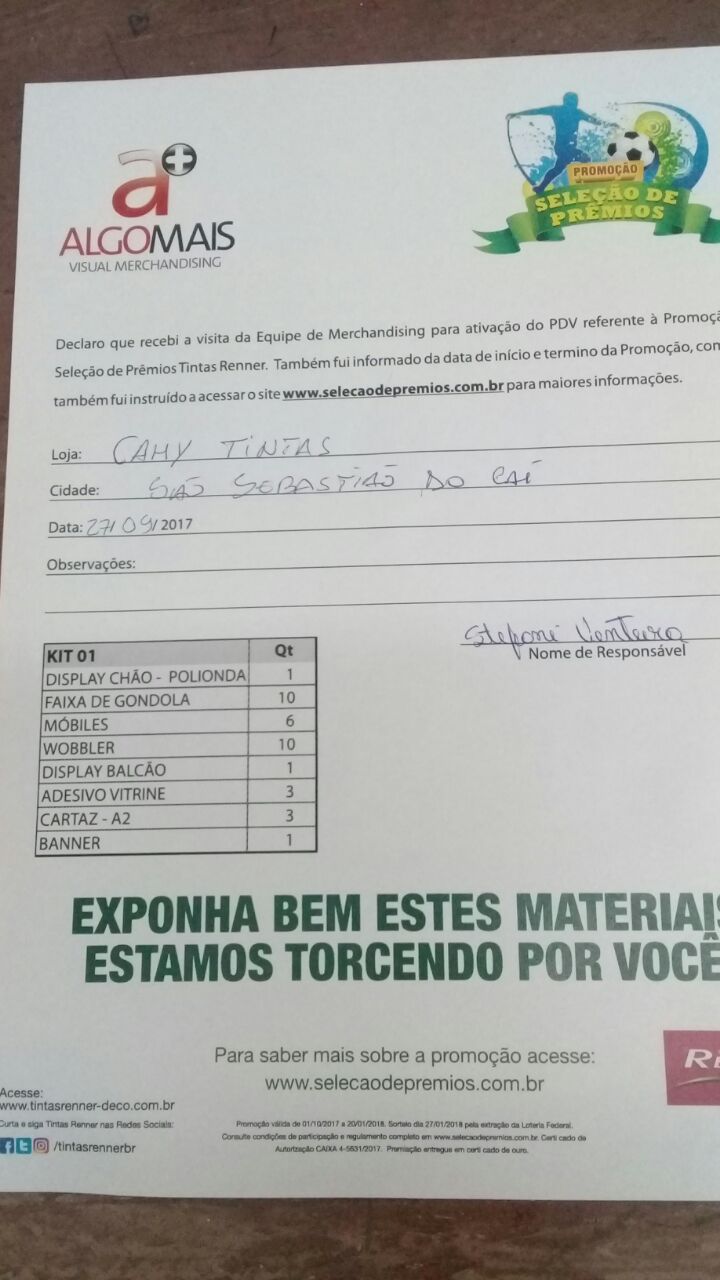 a+
ALGOMAIS
VISUAL MERCHANDISING
PROMOÇÃO
SELEÇÃO DE
PRÊMIOS
Declaro que recebi a visita da Equipe de Merchandising para ativação do PDV referente à Promoçã
Seleção de Prêmios Tintas Renner. Também fui informado da data de início e termino da Promoção, com
também fui instruído a acessar o site www.selecaodepremios.com.br para maiores informações.
Loja: CAHY TINTAS
Cidade: SÃO SEBASTIÃO DO CAÍ
Data: 27/09/2017
Observações:
Nome de Responsável
KIT 01 Qt
DISPLAY CHÃO - POLIONDA 1
FAIXA DE GONDOLA 10
MÓBILES 6
WOBBLER 10
DISPLAY BALCÃO 1
ADESIVO VITRINE 3
CARTAZ - A2 3
BANNER 1
EXPONHA BEM ESTES MATERIAIS
ESTAMOS TORCENDO POR VOCÊ
Para saber mais sobre a promoção acesse:
www.selecaodepremios.com.br
Acesse:
www.tintasrenner-deco.com.br
Curta e siga Tintas Renner nas Redes Sociais:
/tintasrennerbr
Promoção válida de 01/10/2017 a 20/01/2018. Sorteio dia 27/01/2018 pela extração da Loteria Federal.
Consulte condições de participação e regulamento completo em www.selecaodepremios.com.br. Certi cado de
Autorização CAIXA 4-5631/2017. Premiação entregue em certi cado de ouro.